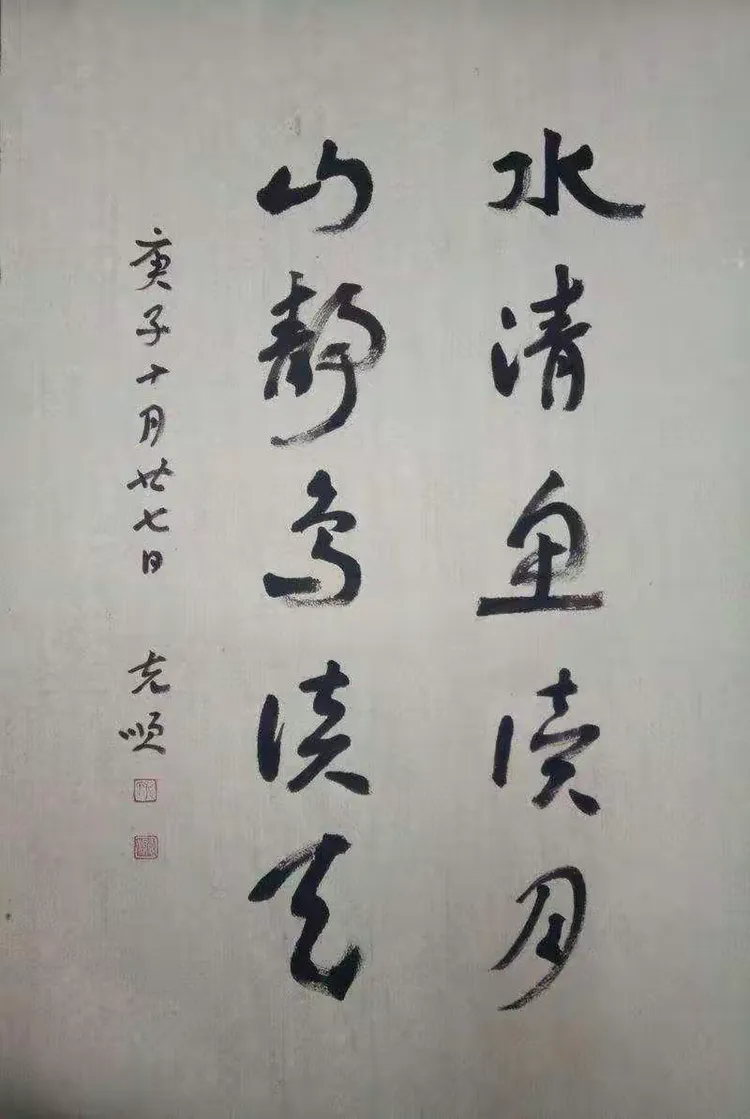 水清鱼读月
山静鸟谈天
庚子十月廿七日 克顺